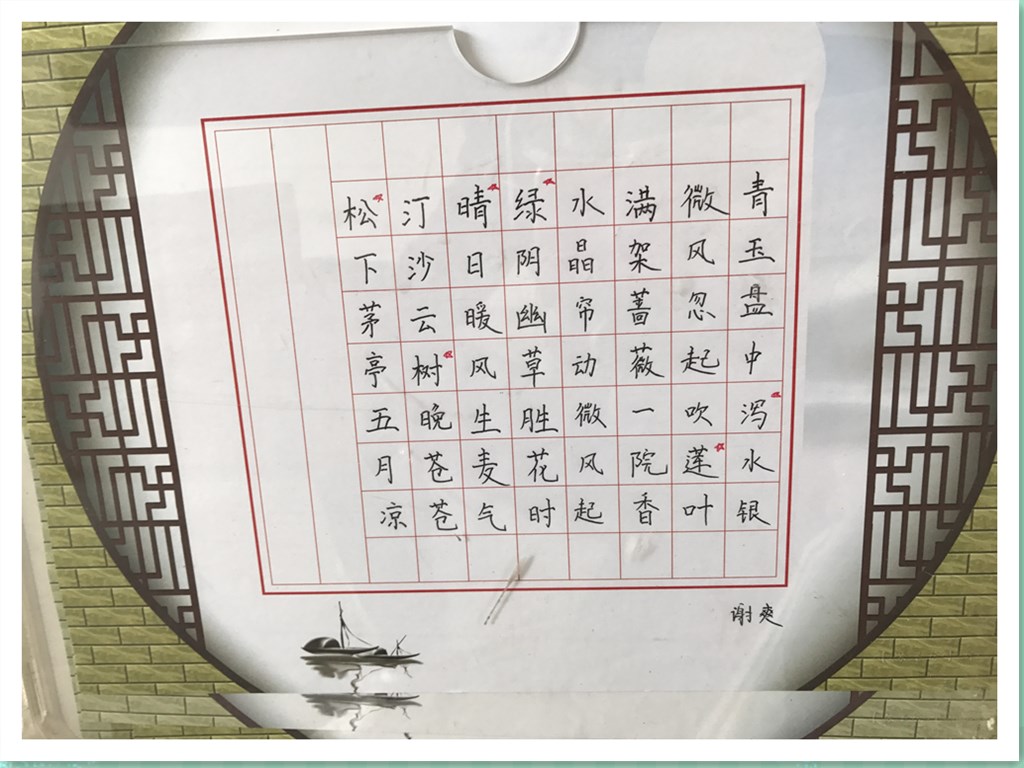 松下茅亭五月凉
汀沙云树晚苍苍
晴日暖风生麦气
绿阴幽草胜花时
水晶帘动微风起
满架蔷薇一院香
微风忽起吹莲叶
青玉盘中泻水银
谢爽